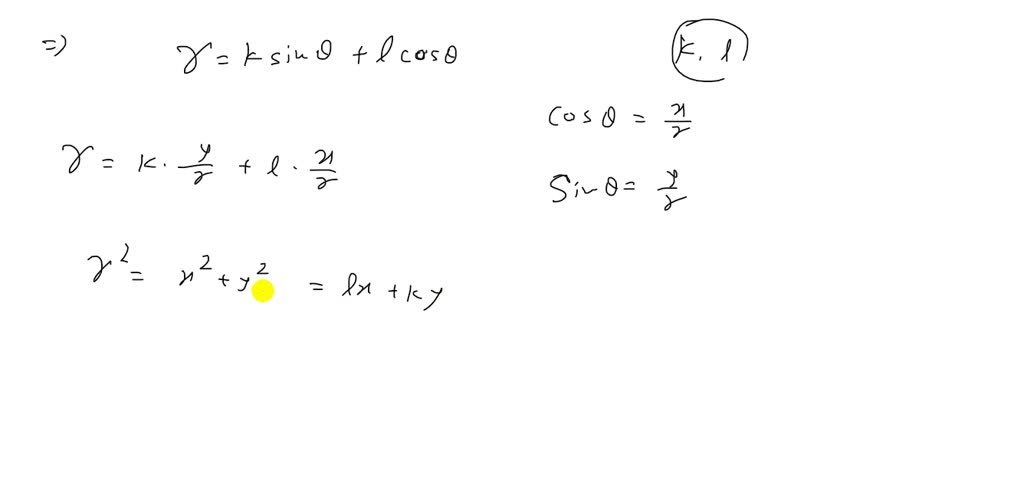 =) r = k sinθ + l cosθ
k, l
cosθ = x/r
r = k · y/r + l · x/r
sinθ = y/r
r² = x² + y² = lx + ky